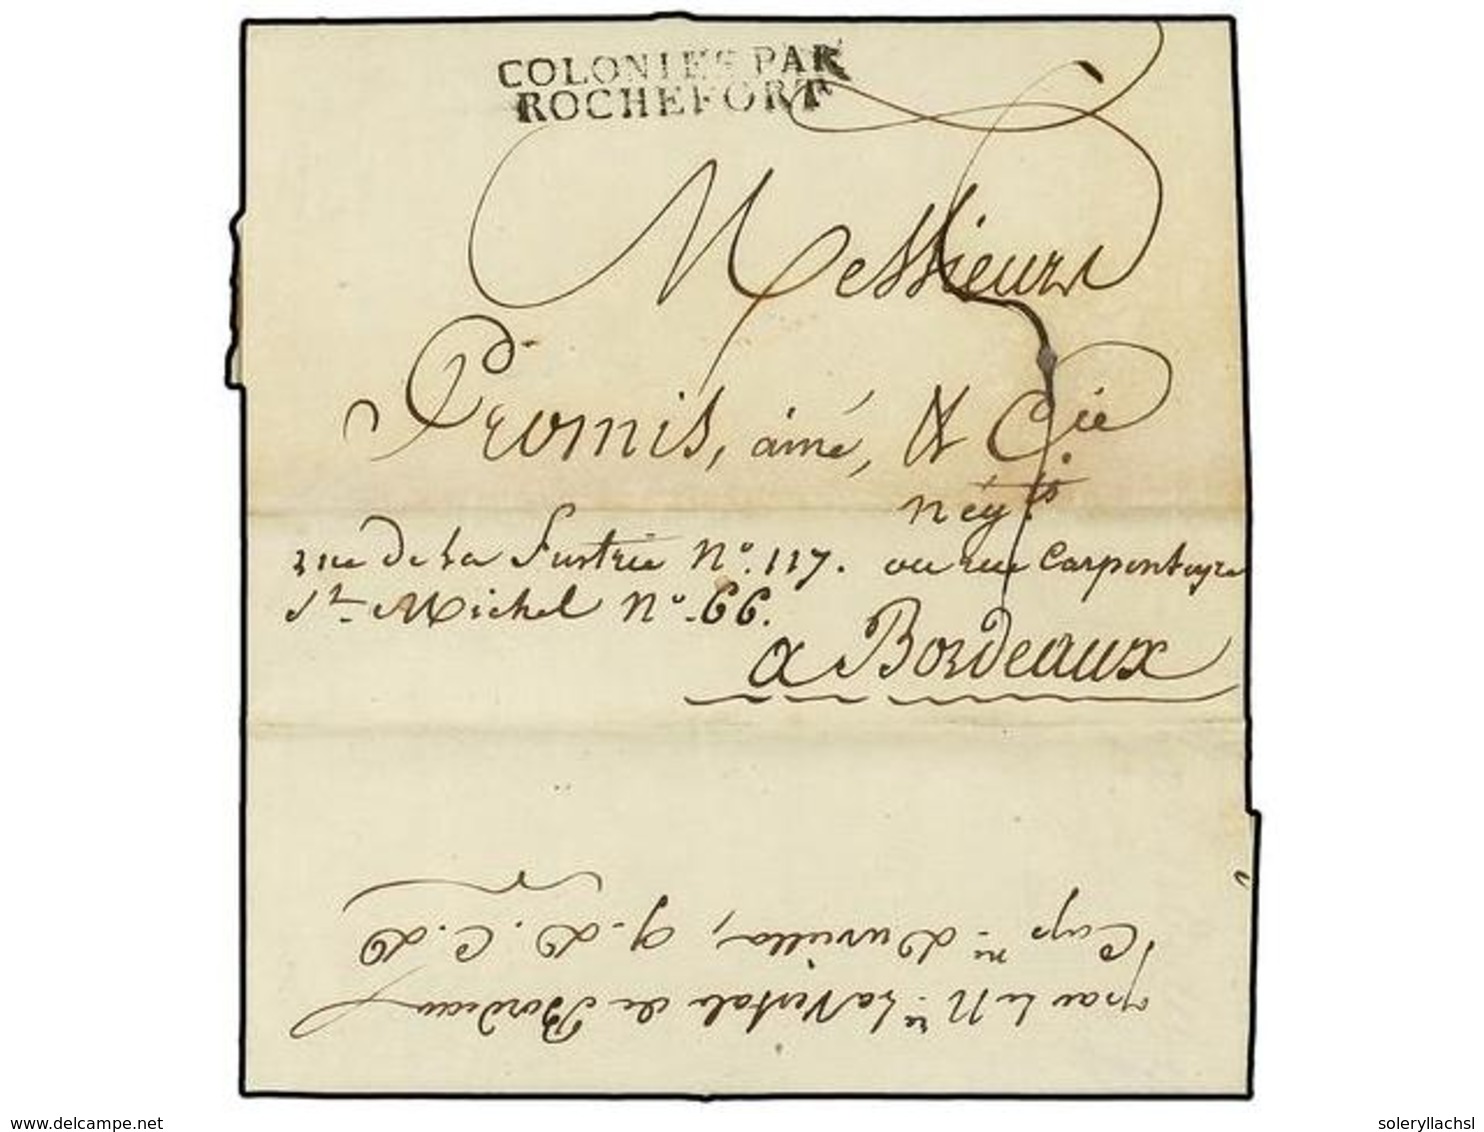 COLONIES PAR
ROCHEFORT
Messieurs
Promis, ainé, & Cie
négts
rue de la Fusterie No. 117. ou rue Carpenteyre
St Michel No. 66.
a Bordeaux
par le Nre La Vestale de Bordeaux
Capne q. D. C. D
www.delcampe.net
soleryllachsl